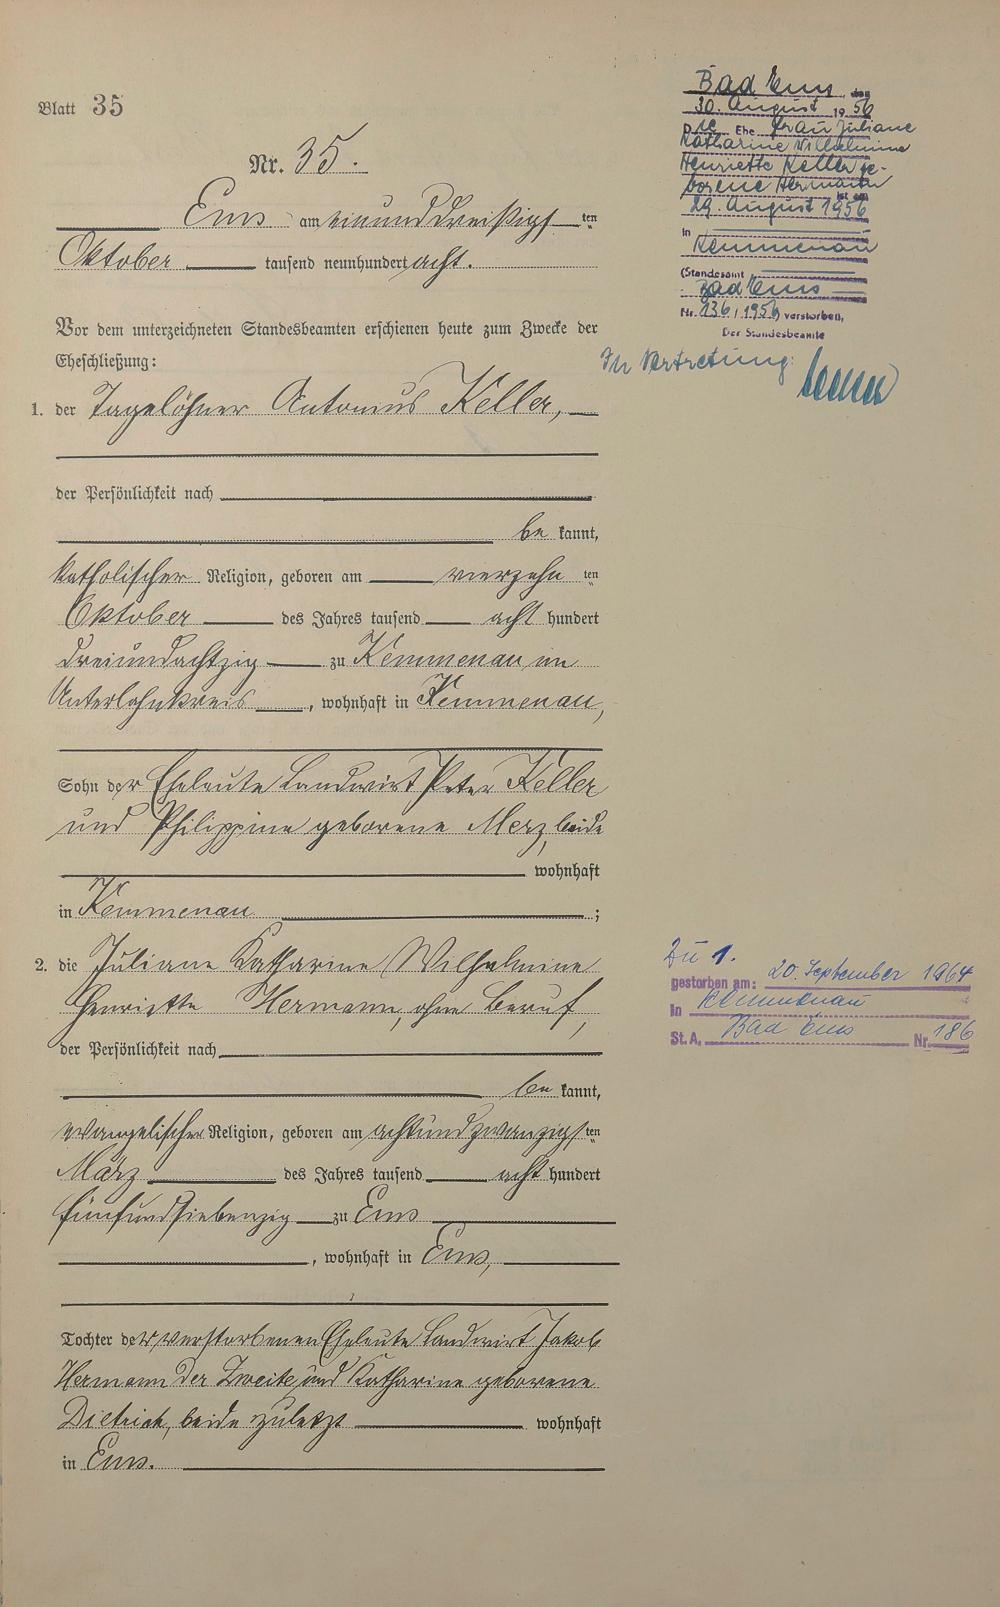 Blatt 35
Nr. 35.
Ems am einunddreißigsten
Oktober tausend neunhundert acht.
Vor dem unterzeichneten Standesbeamten erschienen heute zum Zwecke der
Eheschließung:
1. der Tagelöhner Antonius Keller,
der Persönlichkeit nach
be kannt,
katholischer Religion, geboren am vierzehn ten
Oktober des Jahres tausend acht hundert
dreiundachtzig zu Kemmenau im
Unterlahnkreis, wohnhaft in Kemmenau,
Sohn der Eheleute Landwirt Peter Keller
und Philippine geborene Merz, beide
wohnhaft
in Kemmenau;
2. die Juliane Katharine Wilhelmine
Henriette Hermann, ohne Beruf,
der Persönlichkeit nach
be kannt,
evangelischer Religion, geboren am achtundzwanzigsten
März des Jahres tausend acht hundert
fünfundsiebenzig zu Ems
, wohnhaft in Ems,
Tochter der verstorbenen Eheleute Landwirt Jakob
Hermann der Zweite und Katharine geborene
Dietrich, beide zuletzt wohnhaft
in Ems.
Bad Ems, den
30. August 1956
Die Ehefrau Juliane
Katharine Wilhelmine
Henriette Keller ge-
borene Hermann
ist am
29. August 1956
in
Kemmenau
(Standesamt
Bad Ems
Nr. 136/1956) verstorben.
Der Standesbeamte
In Vertretung:
Zu 1.
gestorben am: 20. September 1964
in Kemmenau
St. A. Bad Ems Nr. 186